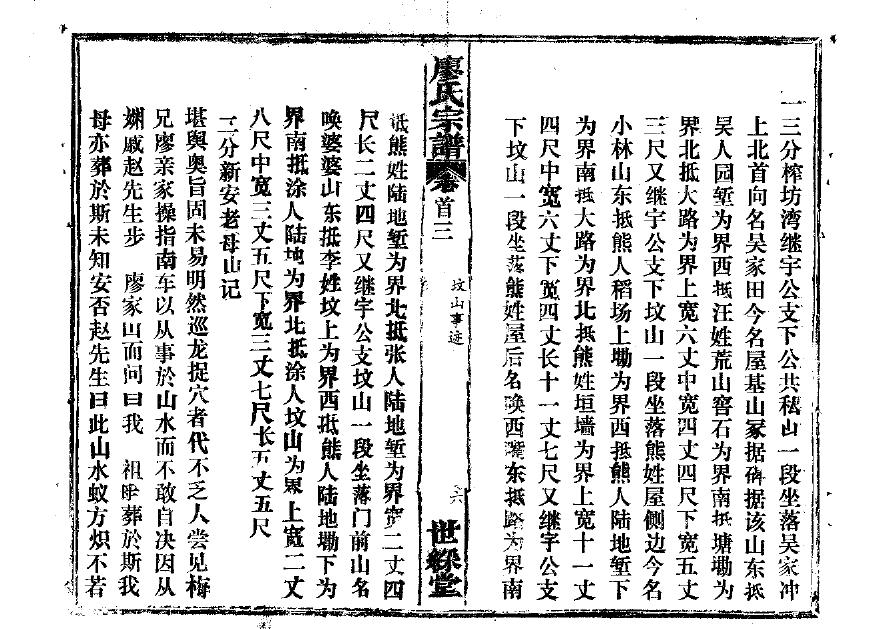 一三分榨坊湾继宇公支下公共私山一段坐落吴家冲
上北首向名吴家田今名屋基山冢据碑据该山东抵
吴人园堑为界西抵汪姓荒山窖石为界南抵塘墈为
界北抵大路为界上宽六丈中宽四丈四尺下宽五丈
三尺又继宇公支下坟山一段坐落熊姓屋侧边今名
小林山东抵熊人稻场上墈为界西抵熊人陆地堑下
为界南抵大路为界北抵熊姓垣墙为界上宽十一丈
四尺中宽六丈下宽四丈长十一丈七尺又继宇公支
下坟山一段坐落熊姓屋后名唤西嘴东抵路为界南
廖氏宗譜
卷首三
坟山事迹
六
世綵堂
抵熊姓陆地堑为界北抵张人陆地堑为界宽二丈四
尺长二丈四尺又继宇公支坟山一段坐落门前山名
唤婆婆山东抵李姓坟上为界西抵熊人陆地墈下为
界南抵涂人陆地为界北抵涂人坟山为界上宽二丈
八尺中宽三丈五尺下宽三丈七尺长五丈五尺
二分新安老母山记
堪舆奥旨固未易明然巡龙捉穴者代不乏人尝见梅
兄廖亲家操指南车以从事於山水而不敢自决因从
姻戚赵先生步 廖家山而问曰我 祖 葬於斯我
母亦葬於斯未知安否赵先生曰此山水蚁方炽不若